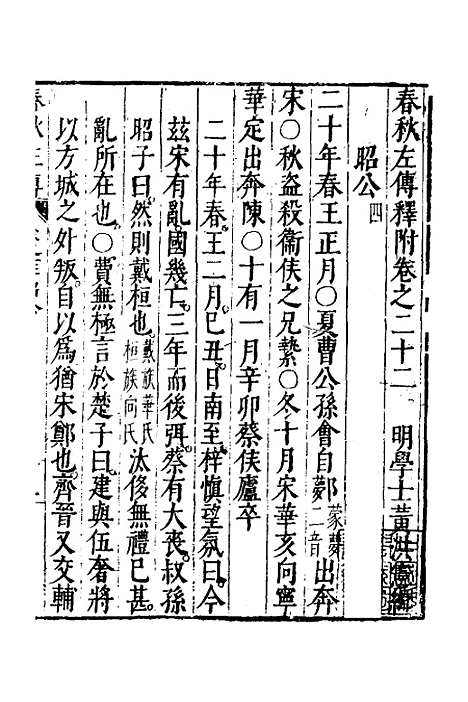 春秋左傳釋附卷之二十二　明學士黃洪憲
昭公四
二十年春王正月○夏曹公孫會自鄸蒙夢二音出奔
宋○秋盜殺衞侯之兄縶○冬十月宋華亥向寧
華定出奔陳○十有一月辛卯蔡侯廬卒
二十年春王二月己丑日南至梓愼望氛曰今
玆宋有亂國幾亡三年而後弭蔡有大喪叔孫
昭子曰然則戴桓也戴族華氏桓族向氏汰侈無禮已甚
亂所在也○費無極言於楚子曰建與伍奢將
以方城之外叛自以爲猶宋鄭也齊晉又交輔